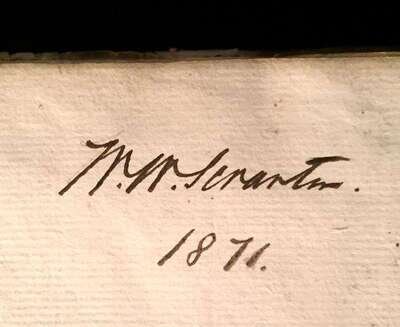 W. W. Scranton.
1871.